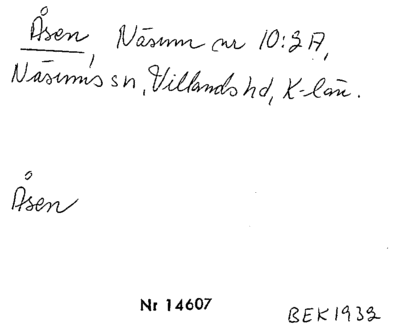 Åsen, Näsum nr 10:2A,
Näsums sn, Villands hd, K-län.
Åsen
Nr 14607
BEK1932